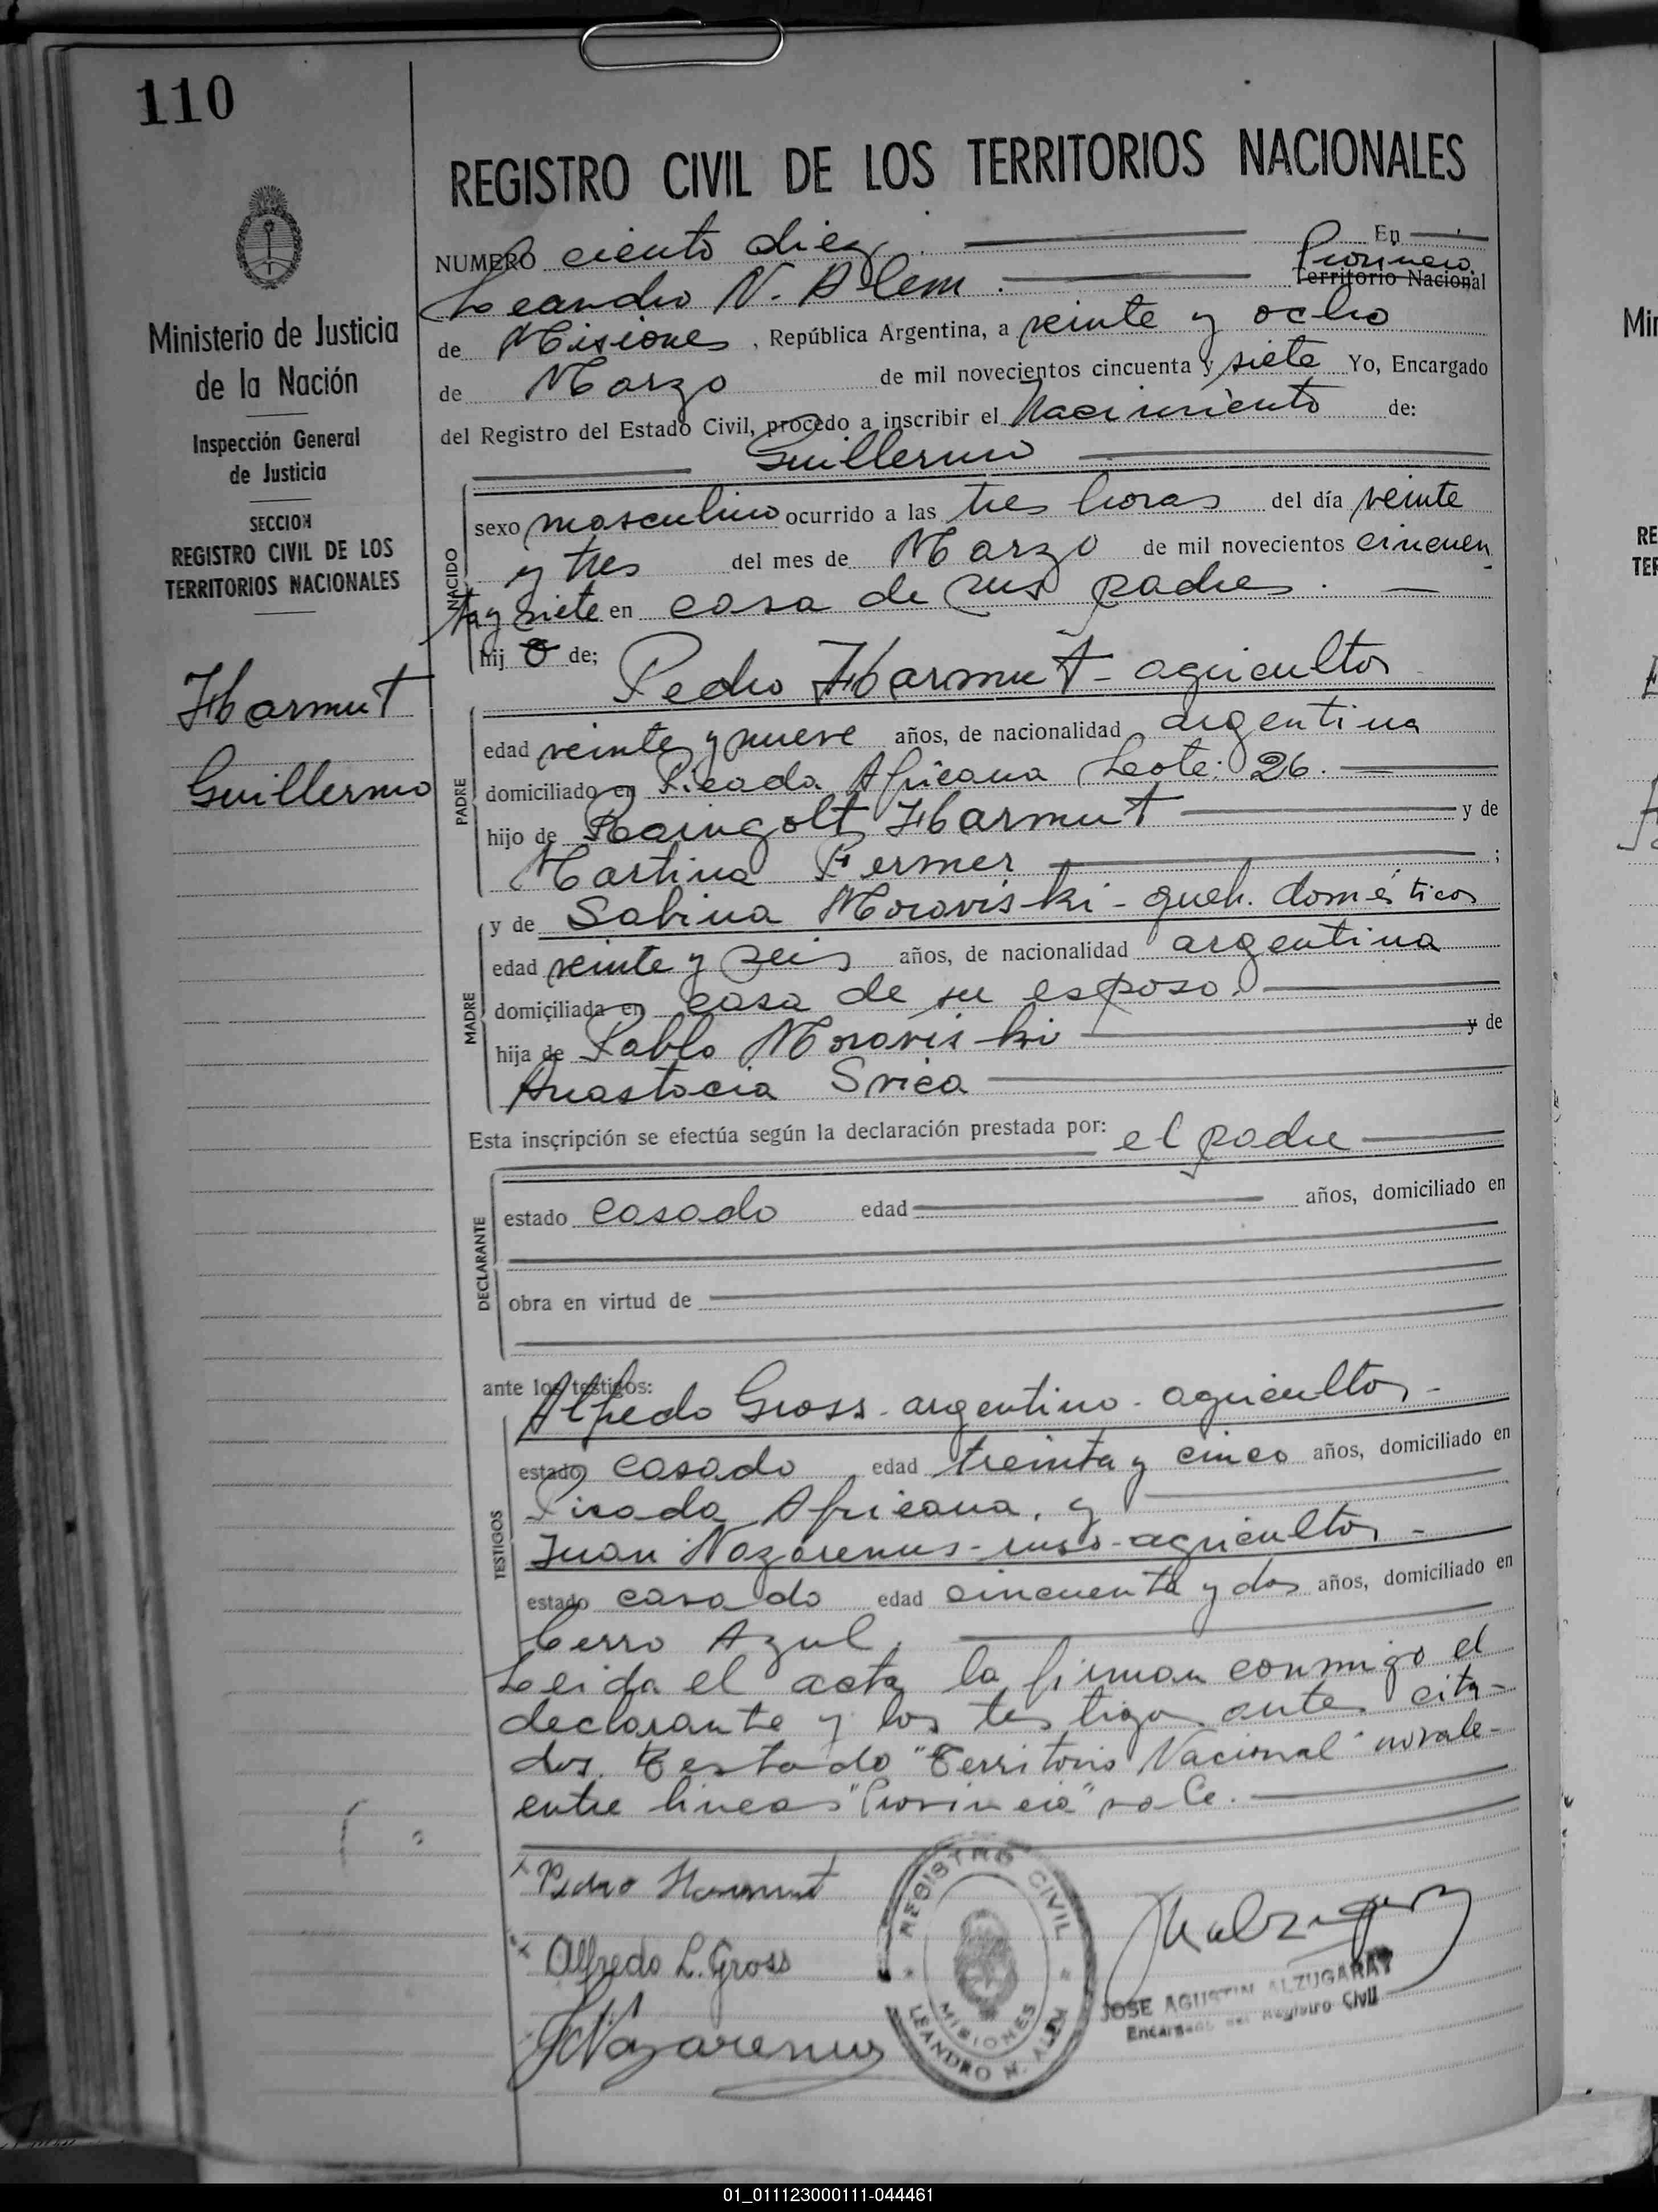 110
Ministerio de Justicia
de la Nación
Inspección General
de Justicia
SECCION
REGISTRO CIVIL DE LOS
TERRITORIOS NACIONALES
Harmut
Guillermo
REGISTRO CIVIL DE LOS TERRITORIOS NACIONALES
NUMERO ciento diez. En
Leandro N. Alem. Provincia
Territorio Nacional
de Misiones, República Argentina, a veinte y ocho
de Marzo de mil novecientos cincuenta y siete Yo, Encargado
del Registro del Estado Civil, procedo a inscribir el Nacimiento de:
Guillermo
NACIDO
sexo masculino ocurrido a las tres horas del día veinte
y tres del mes de Marzo de mil novecientos cincuen
ta y siete en casa de sus padres.
hij o de;
Pedro Harmut - agricultor
PADRE
edad veinte y nueve años, de nacionalidad argentina
domiciliado en Picada Africana Lote: 26.
hijo de Raingolt Harmut y de
Martina Fermer ;
MADRE
y de Sabina Moraviski - queh. domésticos
edad veinte y seis años, de nacionalidad argentina
domiciliada en casa de su esposo.
hija de Pablo Moraviski y de
Anastacia Srica
Esta inscripción se efectúa según la declaración prestada por: el padre
DECLARANTE
estado casado edad años, domiciliado en
obra en virtud de
ante los testigos:
TESTIGOS
Alfredo Gross - argentino - agricultor -
estado casado edad treinta y cinco años, domiciliado en
Picada Africana, y
Juan Nazarenus - ruso - agricultor -
estado casado edad cincuenta y dos años, domiciliado en
Cerro Azul.
Leida el acta la firman conmigo el
declarante y los testigos antes cita-
dos. Testado "Territorio Nacional" no vale -
entre lineas "Provincia" vale.
Pedro Harmut
Alfredo L. Gross
J Nazarenus
REGISTRO CIVIL
MISIONES
LEANDRO N. ALEM
JOSE AGUSTIN ALZUGARAY
Encargado del Registro Civil
Mi
RE
TE
01_011123000111-044461